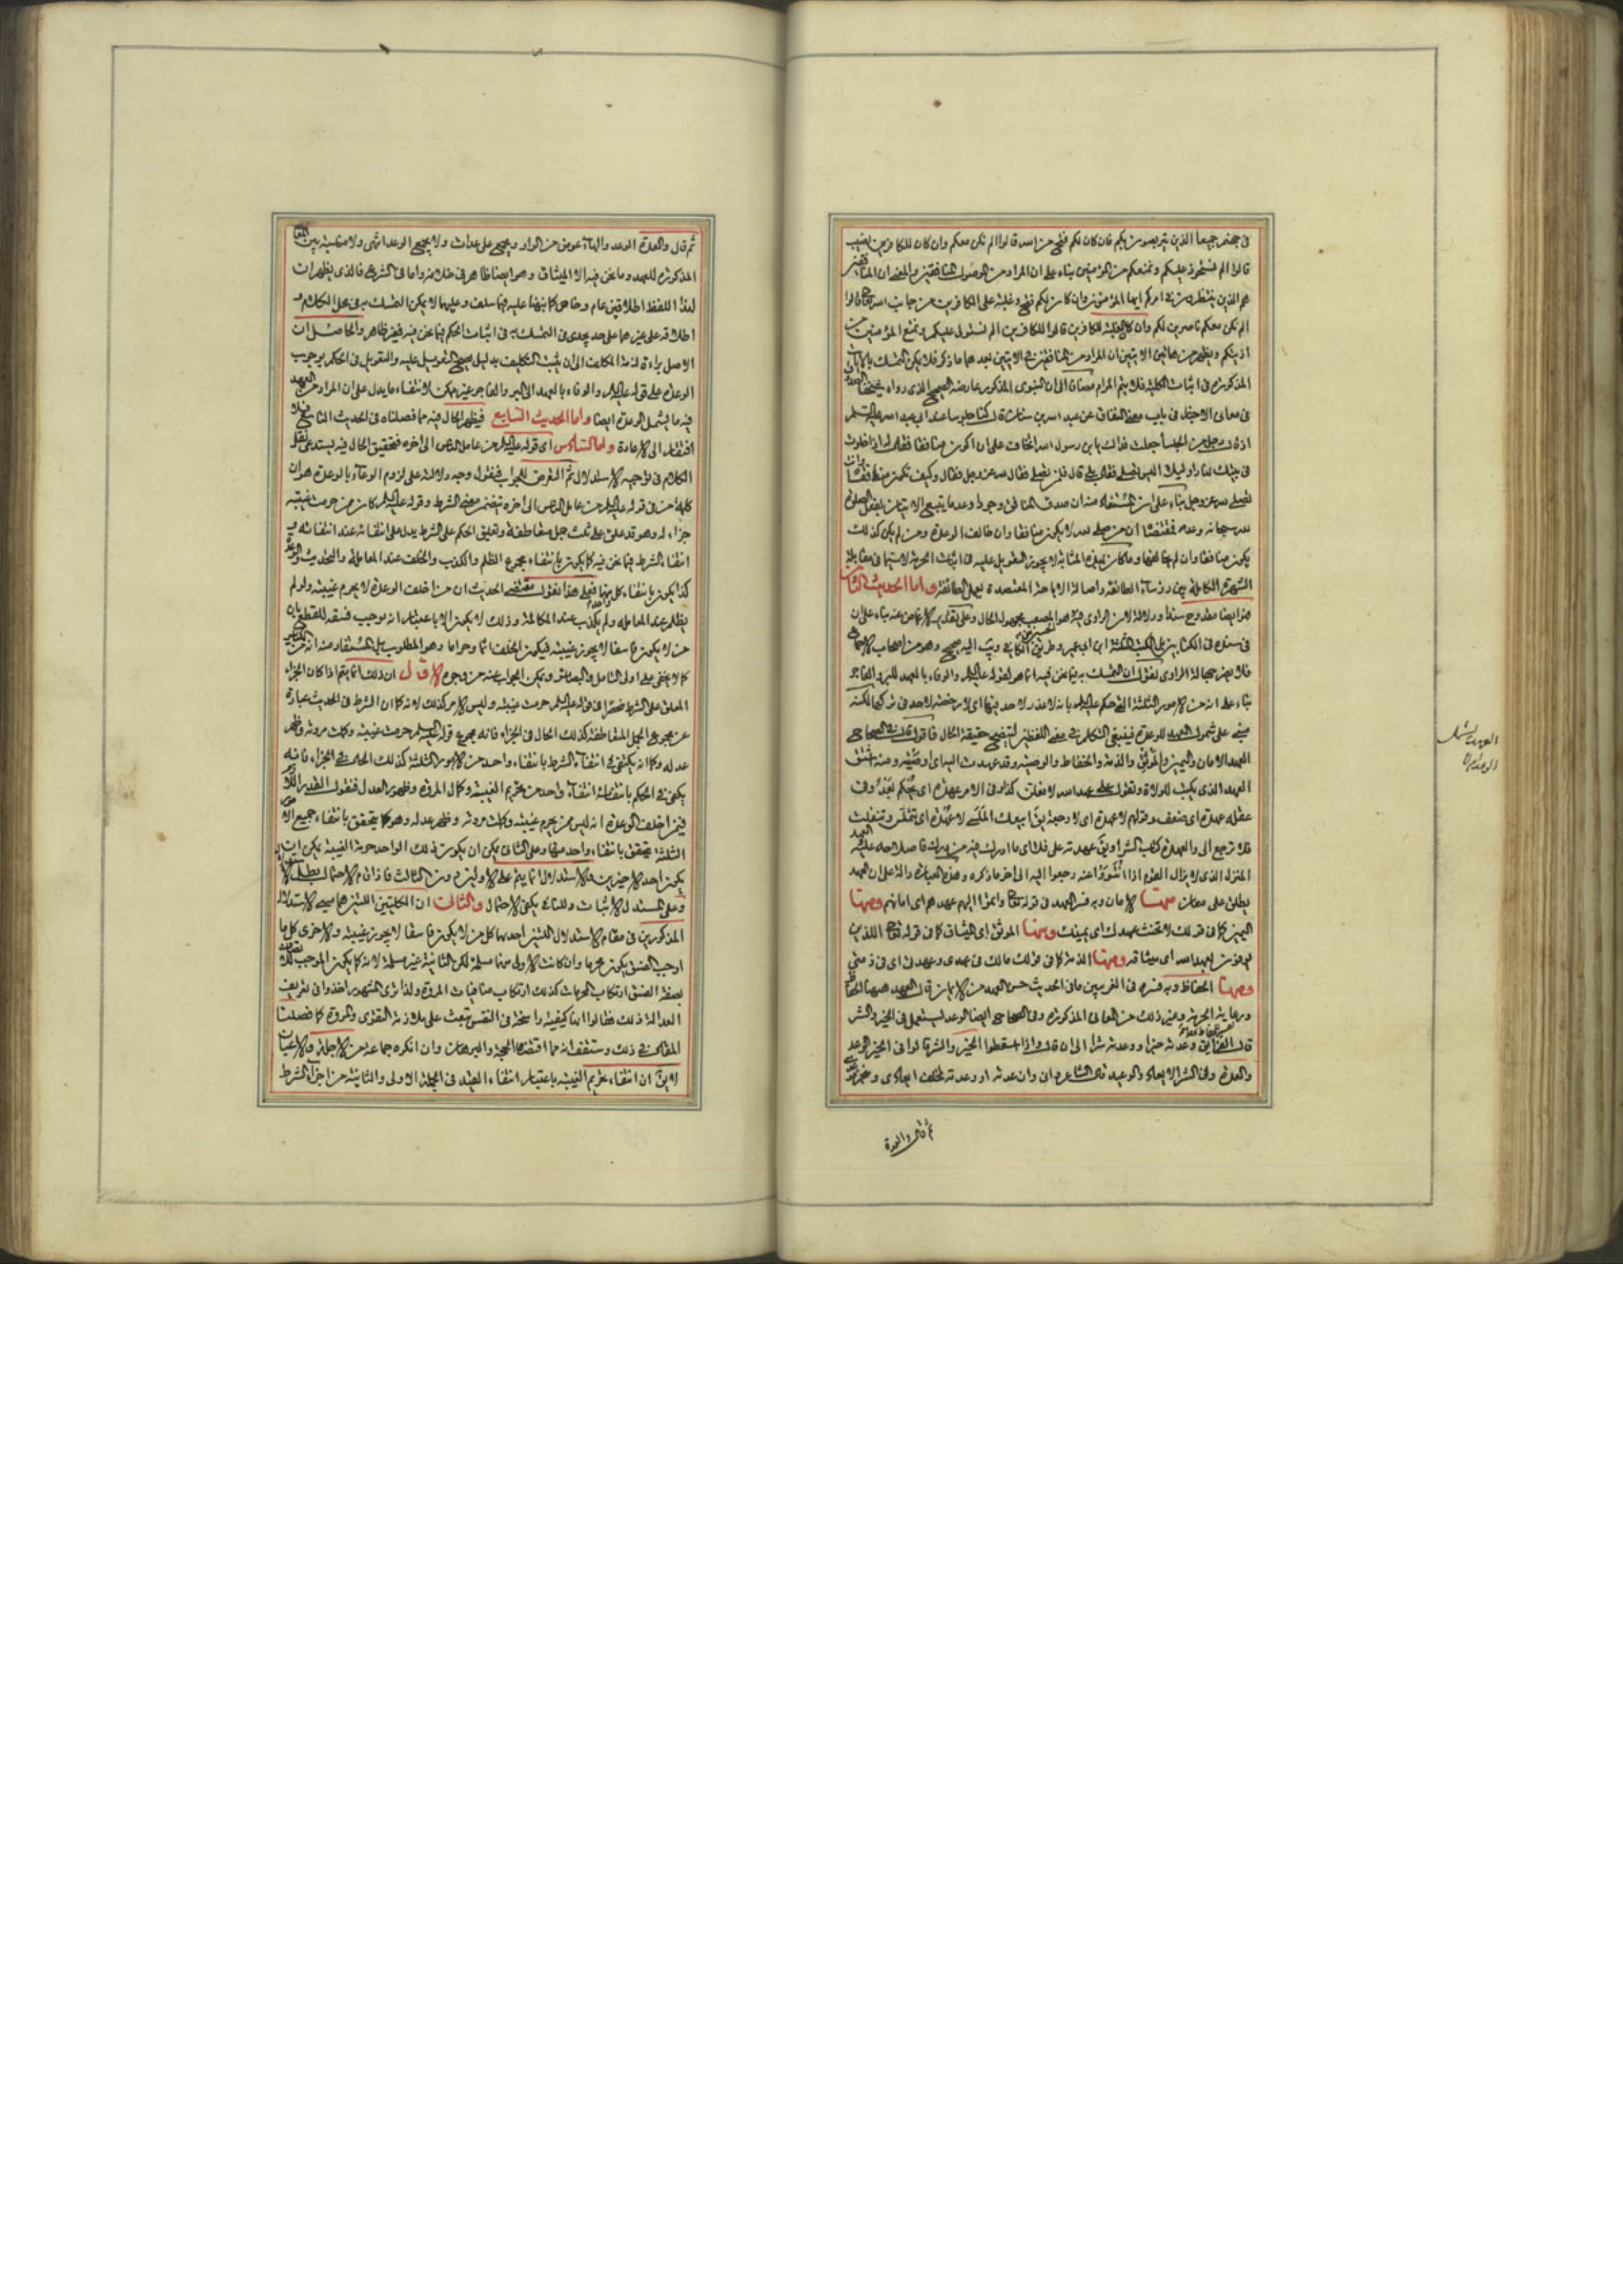 في جهنم جميعا الذين يتربصون بكم فان كان لكم فتح من الله قالوا الم نكن معكم وان كان للكافرين نصيب
قالوا الم نستحوذ عليكم ونمنعكم من المؤمنين بناء على ان المراد من الموصول المنافقين والمعنى ان المنافقين
هم الذين ينتظرون امركم ايها المؤمنون وان كان لكم فتح وغلبة على الكافرين من جانب الله تعالى قالوا
الم نكن معكم ناصرين لكم وان كان الغلبة للكافرين قالوا للكافرين الم نستول عليكم ونمنع المؤمنين من
اذيتكم ويظهر من هاتين الايتين ان المراد من المنافقين في الايتين بعدهما ما ذكر فلا يمكن التمسك بالايات
المذكورة في اثبات الكلية فلا يتم المرام مضافا الى ان النبوي المذكور عارضه الصحيح الذي رواه شيخنا الصدوق
في معاني الاخبار في باب معنى النفاق عن عبد الله بن سنان قال كنا جلوسا عند ابي عبد الله عليه السلم
اذ قال رجل من الجلساء جعلت فداك يا بن رسول الله اتخاف على ان اكون منافقا فقال له اذا خلوت
في بيتك نهارا وليلا اليس تصلي فقال بلى قال فلمن تصلي فقال لله عز وجل فقال وكيف تكون منافقا وانت
تصلي لله عز وجل بناء على ان المستفاد منه ان صدق المنافق وجودا وعدما يتبع الاتيان بفعل الصلوة
لله سبحانه وعدمه فمقتضاه ان من صلى لله لا يكون منافقا وان خالف الوعدة ومن لم يكن كذلك
يكون منافقا وان لم يخالفها وما كان بهذه المثابة لا يجوز التعويل عليه في اثبات الحرمة لاسيما في مقابلة
الشهرة الكاملة بين رؤساء الطائفة واصالة الاباحة المعتضدة بعمل الطائفة واما الحديث الثالث
فهو ايضا مقدوح سندا ودلالة لان الراوي فيه هو المصعب مجهول الحال وعلى تقدير الاغماض عنه بناء على ان
في سنده في الكتابين على الكتب الثلثة ابن ابي عمير وطريق الكافي اليه صحيح وهو من اصحاب الاجماع
فلا يضر جهالة الراوي نقول ان التمسك به فيما نحن فيه انما هو لقوله عليه السلم والوفاء بالعهد للبر والفاجر
بناء على انه من الامور الثلثة التي حكم عليه السلم بانه لا عذر لاحد فيها اي لا رخصة لاحد في تركها لكنه
مبني على شمول العهد للوعدة فينبغي التكلم في معنى اللفظين ليتضح حقيقة الحال فاقول قال في الصحاح
العهد الامان واليمين والموثق والذمة والحفاظ والوصية وقد عهدت اليه اي اوصيته ومنه اشتق
العهد الذي يكتب للولاة وتقول على عهد الله لافعلن كذا وفي الامر عهدة اي لم يحكم بعد وفي
عقله عهدة اي ضعف وقولهم لا عهدة اي لا رجعة يق ابيعك الملسى لا عهدة اي تتملس وتنفلت
فلا ترجع الي والعهدة كتاب الشراء ويق عهدته على فلان اي ما ادرك فيه من درك فاصلاحه عليه والعهد
المنزل الذي لا يزال القوم اذا انتووا عنه رجعوا اليه الى اخر ما ذكره وهذه العبارة دالة على ان العهد
يطلق على معان منها الامان وبه فسر العهد في قوله تعالى واتموا اليهم عهدهم اي امانهم ومنها
اليمين كما في قولك لا تحنث عهدك اي يمينك ومنها الموثق اي الميثاق كما في قوله تعالى الذين
يوفون بعهد الله اي ميثاقه ومنها الذمة كما في قولك مالك في عهدي وعهدتي اي في ذمتي
ومنها الحفاظ وبه فسره في الغريبين ما في الحديث حسن العهد من الايمان قال العهد ههنا الحفاظ
ورعاية الحرمة وغير ذلك من المعاني المذكورة وفي الصحاح ايضا الوعد يستعمل في الخير والشر
قال الفراء يق وعدته خيرا ووعدته شرا الى ان قال واذا اسقطوا الخير والشر قالوا في الخير الوعد
والعدة وفي الشر الايعاد والوعيد قال الشاعر واني وان وعدته او وعدته لمخلف ايعادي ومنجز موعدي
ثم قال والعدة
العهد يشمل
الوعد ام لا
ثم قال والعدة الوعد والهاء عوض من الواو ويجمع على عدات ولا يجمع الوعد انتهى ولا مناسبة بين المعاني
المذكورة للعهد وما نحن فيه الا الميثاق وهو ايضا ظاهر في خلافه واما في الشرع فالذي يظهر ان
لهذا اللفظ اطلاقين عام وخاص كما نبهنا عليه فيما سلف وعليهما لا يمكن التمسك به في محل الكلام و
اطلاقه على غيرهما على حد يجدي في التمسك به في اثبات الحكم فيما نحن فيه غير ظاهر والحاصل ان
الاصل براءة ذمة المكلف الى ان يثبت التكليف بدليل يصح التعويل عليه والتعويل في الحكم بوجوب
الوعدة على قوله عليه السلم والوفاء بالعهد الى البر والفاجر غير ممكن لانتفاء ما يدل على ان المراد من العهد
فيه ما يشمل الوعدة ايضا واما الحديث السابع فيظهر الحال فيه مما فصلناه في الحديث الثاني فلا
افتقار الى الاعادة واما السادس اي قوله عليه السلم من عامل الناس الى اخره فتحقيق الحال فيه يستدعي نقل
الكلام في توجيه الاستدلال ثم التعرض للجواب فنقول وجه دلالته على لزوم الوفاء بالوعدة هو ان
كلمة من في قوله عليه السلم من عامل الناس الى اخره تتضمن معنى الشرط وقوله عليه السلم كان ممن حرمت غيبته
جزاء له وهو قد علق على ثلث جمل متعاطفة وتعليق الحكم على الشرط يدل على انتفائه عند انتفائه و
انتفاء الشرط فيما نحن فيه كما يكون بانتفاء مجموع الظلم والكذب والخلف عند المعاملة والتحديث والوعد
كذا يكون بانتفاء كل منها فعلى هذا نقول مقتضى الحديث ان من اخلف الوعدة لا يحرم غيبته ولو لم
يظلم عند المعاملة ولم يكذب عند المكالمة وذلك لا يكون الا باعتبار انه يوجب فسقه للقطع بان
من لا يكون فاسقا لا يجوز غيبته فيكون الخلف اثما وحراما وهو المطلوب بل المستفاد منه انه من الكبائر
كما لا يخفى على اولي التامل والبصائر ويمكن الجواب عنه من وجوه الاول ان ذلك انما يتم اذا كان الجزاء
المعلق على الشرط منحصرا في قوله عليه السلم حرمت غيبته وليس الامر كذلك لانه كما ان الشرط في الحديث عبارة
عن مجموع الجمل المتعاطفة كذلك الحال في الجزاء فانه مجموع قوله عليه السلم حرمت غيبته وكملت مروته وظهر
عدله وكما انه يكتفي في انتفاء الشرط بانتفاء واحد من الامور الثلثة كذلك الحال في الجزاء فانه
يكفي في الحكم بانتفائه انتفاء واحد من تحريم الغيبة وكمال المروة وظهور العدل فنقول القدر اللازم
فيمن اخلف الوعدة انه ليس ممن يحرم غيبته وكملت مروته وظهر عدله وهو كما يتحقق بانتفاء جميع الامور
الثلثة يتحقق بانتفاء واحد منها وعلى الثاني يمكن ان يكون ذلك الواحد حرمة الغيبة ويمكن ان
يكون احد الاخيرين والاستدلال انما يتم على الاولين دون الثالث فاذا قام الاحتمال بطل الاستدلال
وعلى المستدل الاثبات وللنافي يكفي الاحتمال والثاني ان الكليتين اللتين هما مبنى الاستدلال
المذكورين في مقام الاستدلال اللتين احديهما كل من لا يكون فاسقا لا يجوز غيبته والاخرى كل ما
اوجب الفسق يكون محرما وان كانت الاولى منهما مسلمة لكن الثانية غير مسلمة لانه كما يكون الموجب للاتصاف
بصفة الفسق ارتكاب المحرمات كذلك ارتكاب منافيات المروة ولذا ترى المشهور اخذوا في تعريف
العدالة ذلك فقالوا انها كيفية راسخة في النفس تبعث على ملازمة التقوى والمروة كما فصلنا
المقال في ذلك وستقف انه مما اقتضاه الحجة والبرهان وان انكره جماعة من الاجلة والاعيان
لا يق ان انتفاء تحريم الغيبة باعتبار انتفاء القيد في الجملة الاولى والثانية من اجزاء الشرط